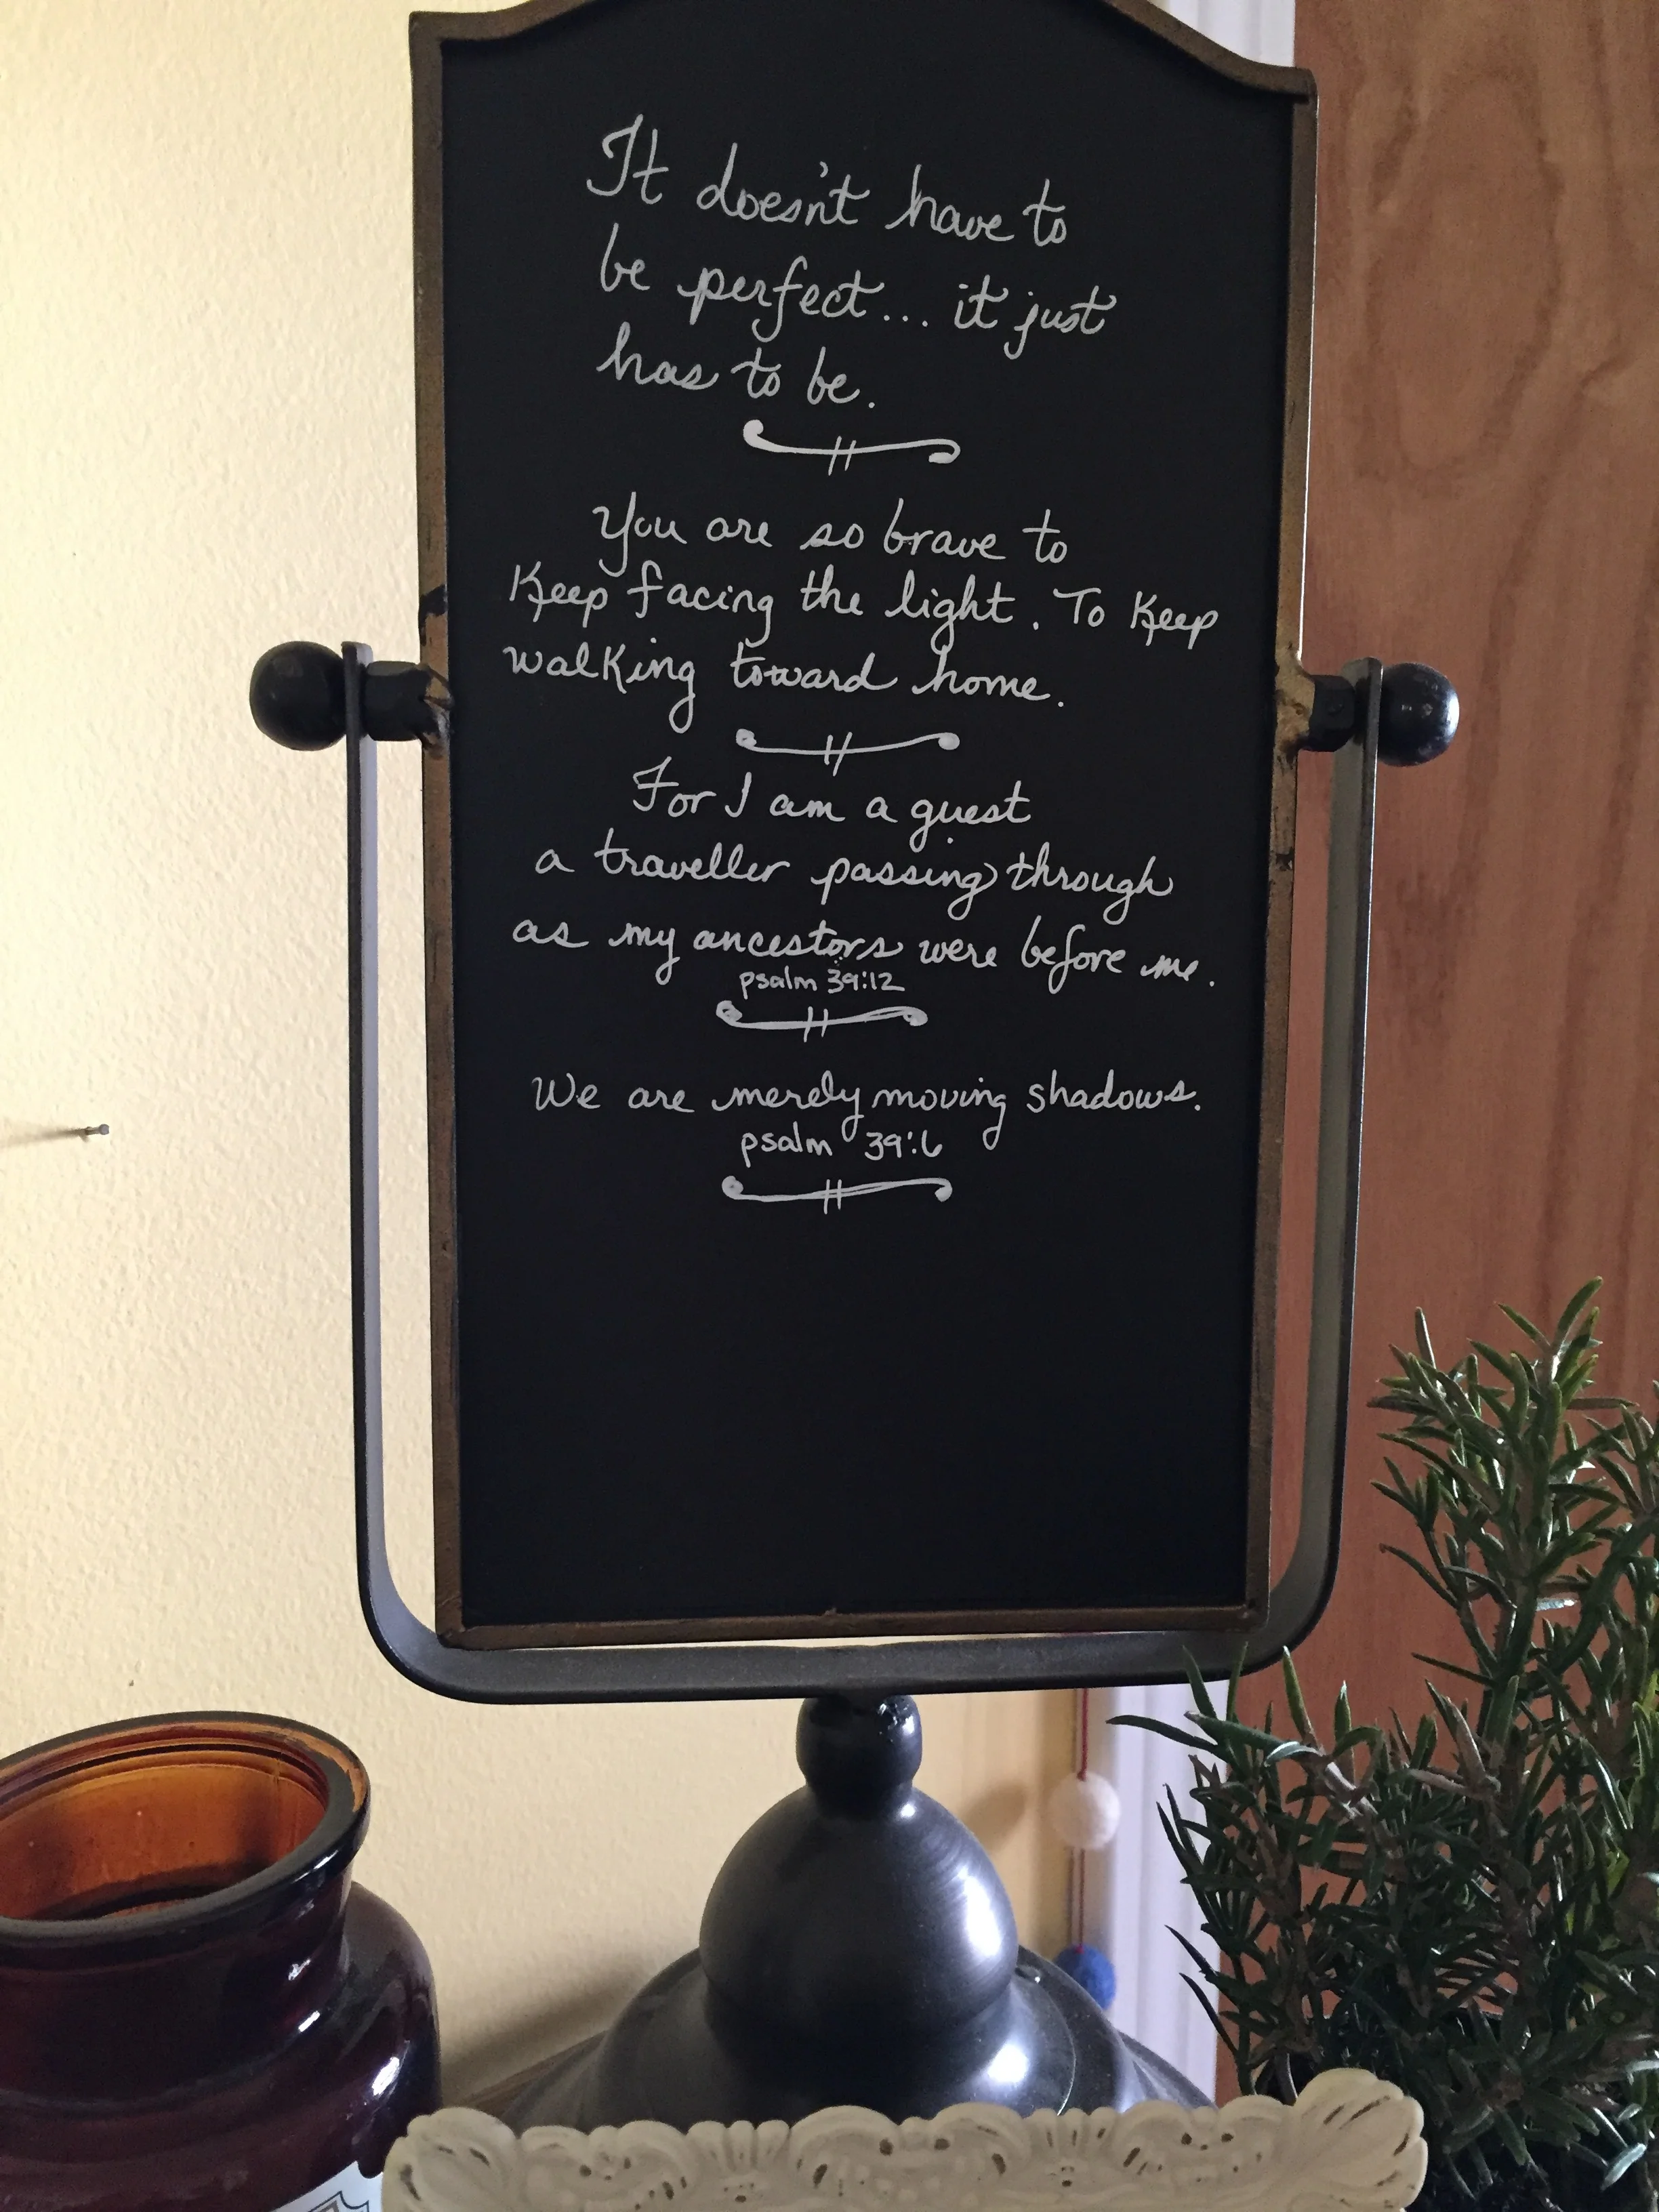 It doesn't have to
be perfect... it just
has to be.
You are so brave to
Keep facing the light. To Keep
walking toward home.
For I am a guest
a traveller passing through
as my ancestors were before me.
psalm 39:12
We are merely moving shadows.
psalm 39:6